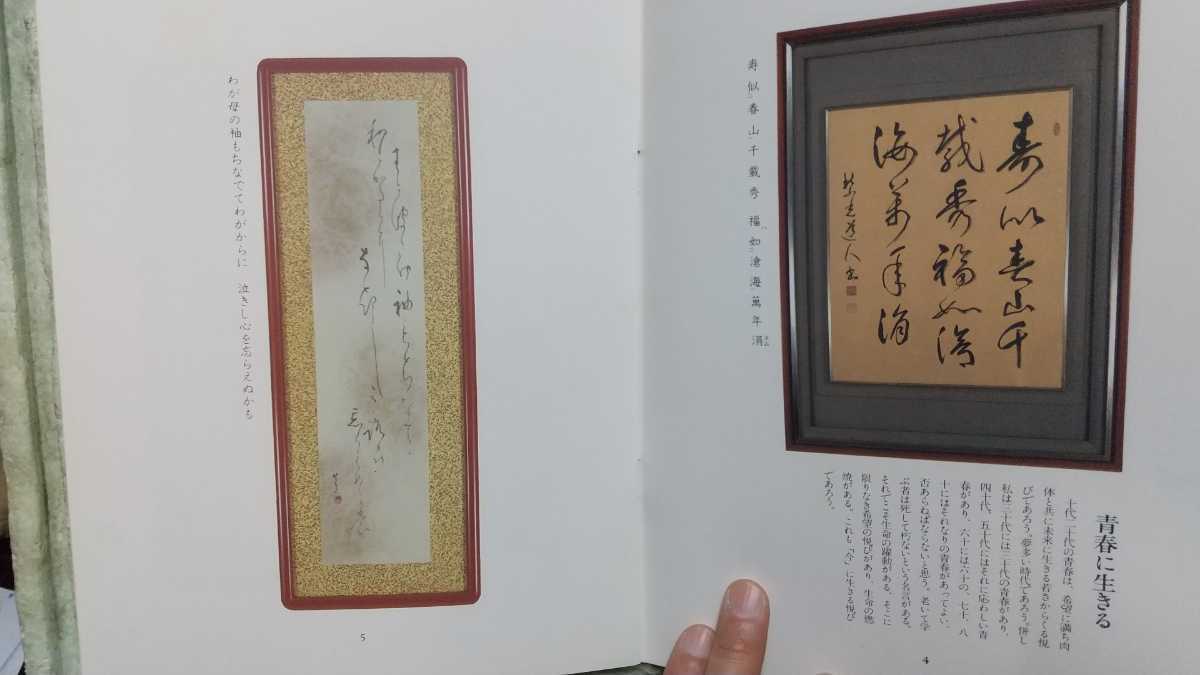 寿似春山千
載秀福如滄
海萬年涓
寿似春山千載秀 福如滄海萬年涓
青春に生きる
十代二十代の青春は、希望に満ち肉
体と共に未来に生きる若さからくる悦
びであろう。夢多い時代であろう。併し
私は三十代には三十代の青春があり、
四十代、五十代にはそれに応わしい青
春があり、六十には六十の、七十、八
十にはそれなりの青春があってよい、
否あらねばならないと思う。老いて学
ぶ者は死して朽ないという名言がある。
それでこそ生命の躍動がある。そこに
限りなき希望の悦びがあり、生命の燃
焼がある。これも「今」に生きる悦び
であろう。
4
わが母の袖もちなでてわがからに 泣きし心を忘らえぬかも
5